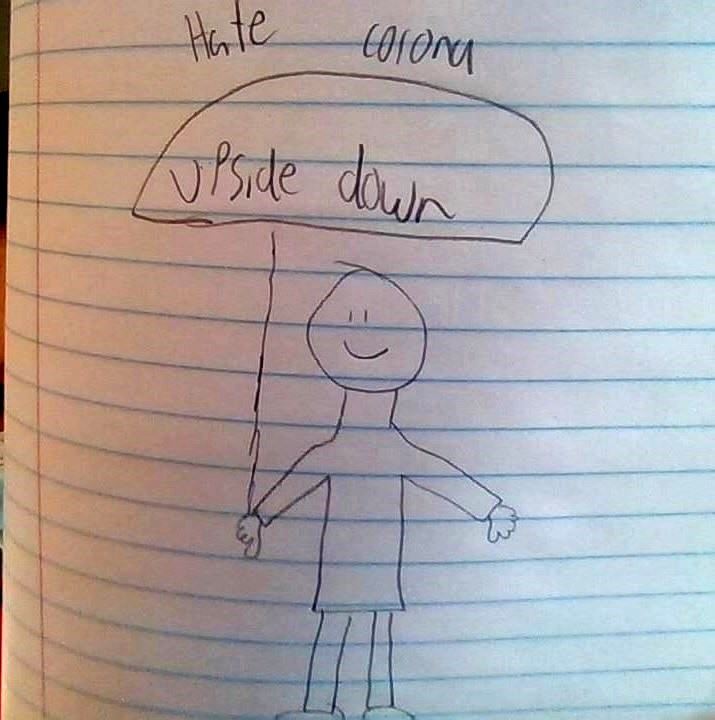 Hate corona
upside down